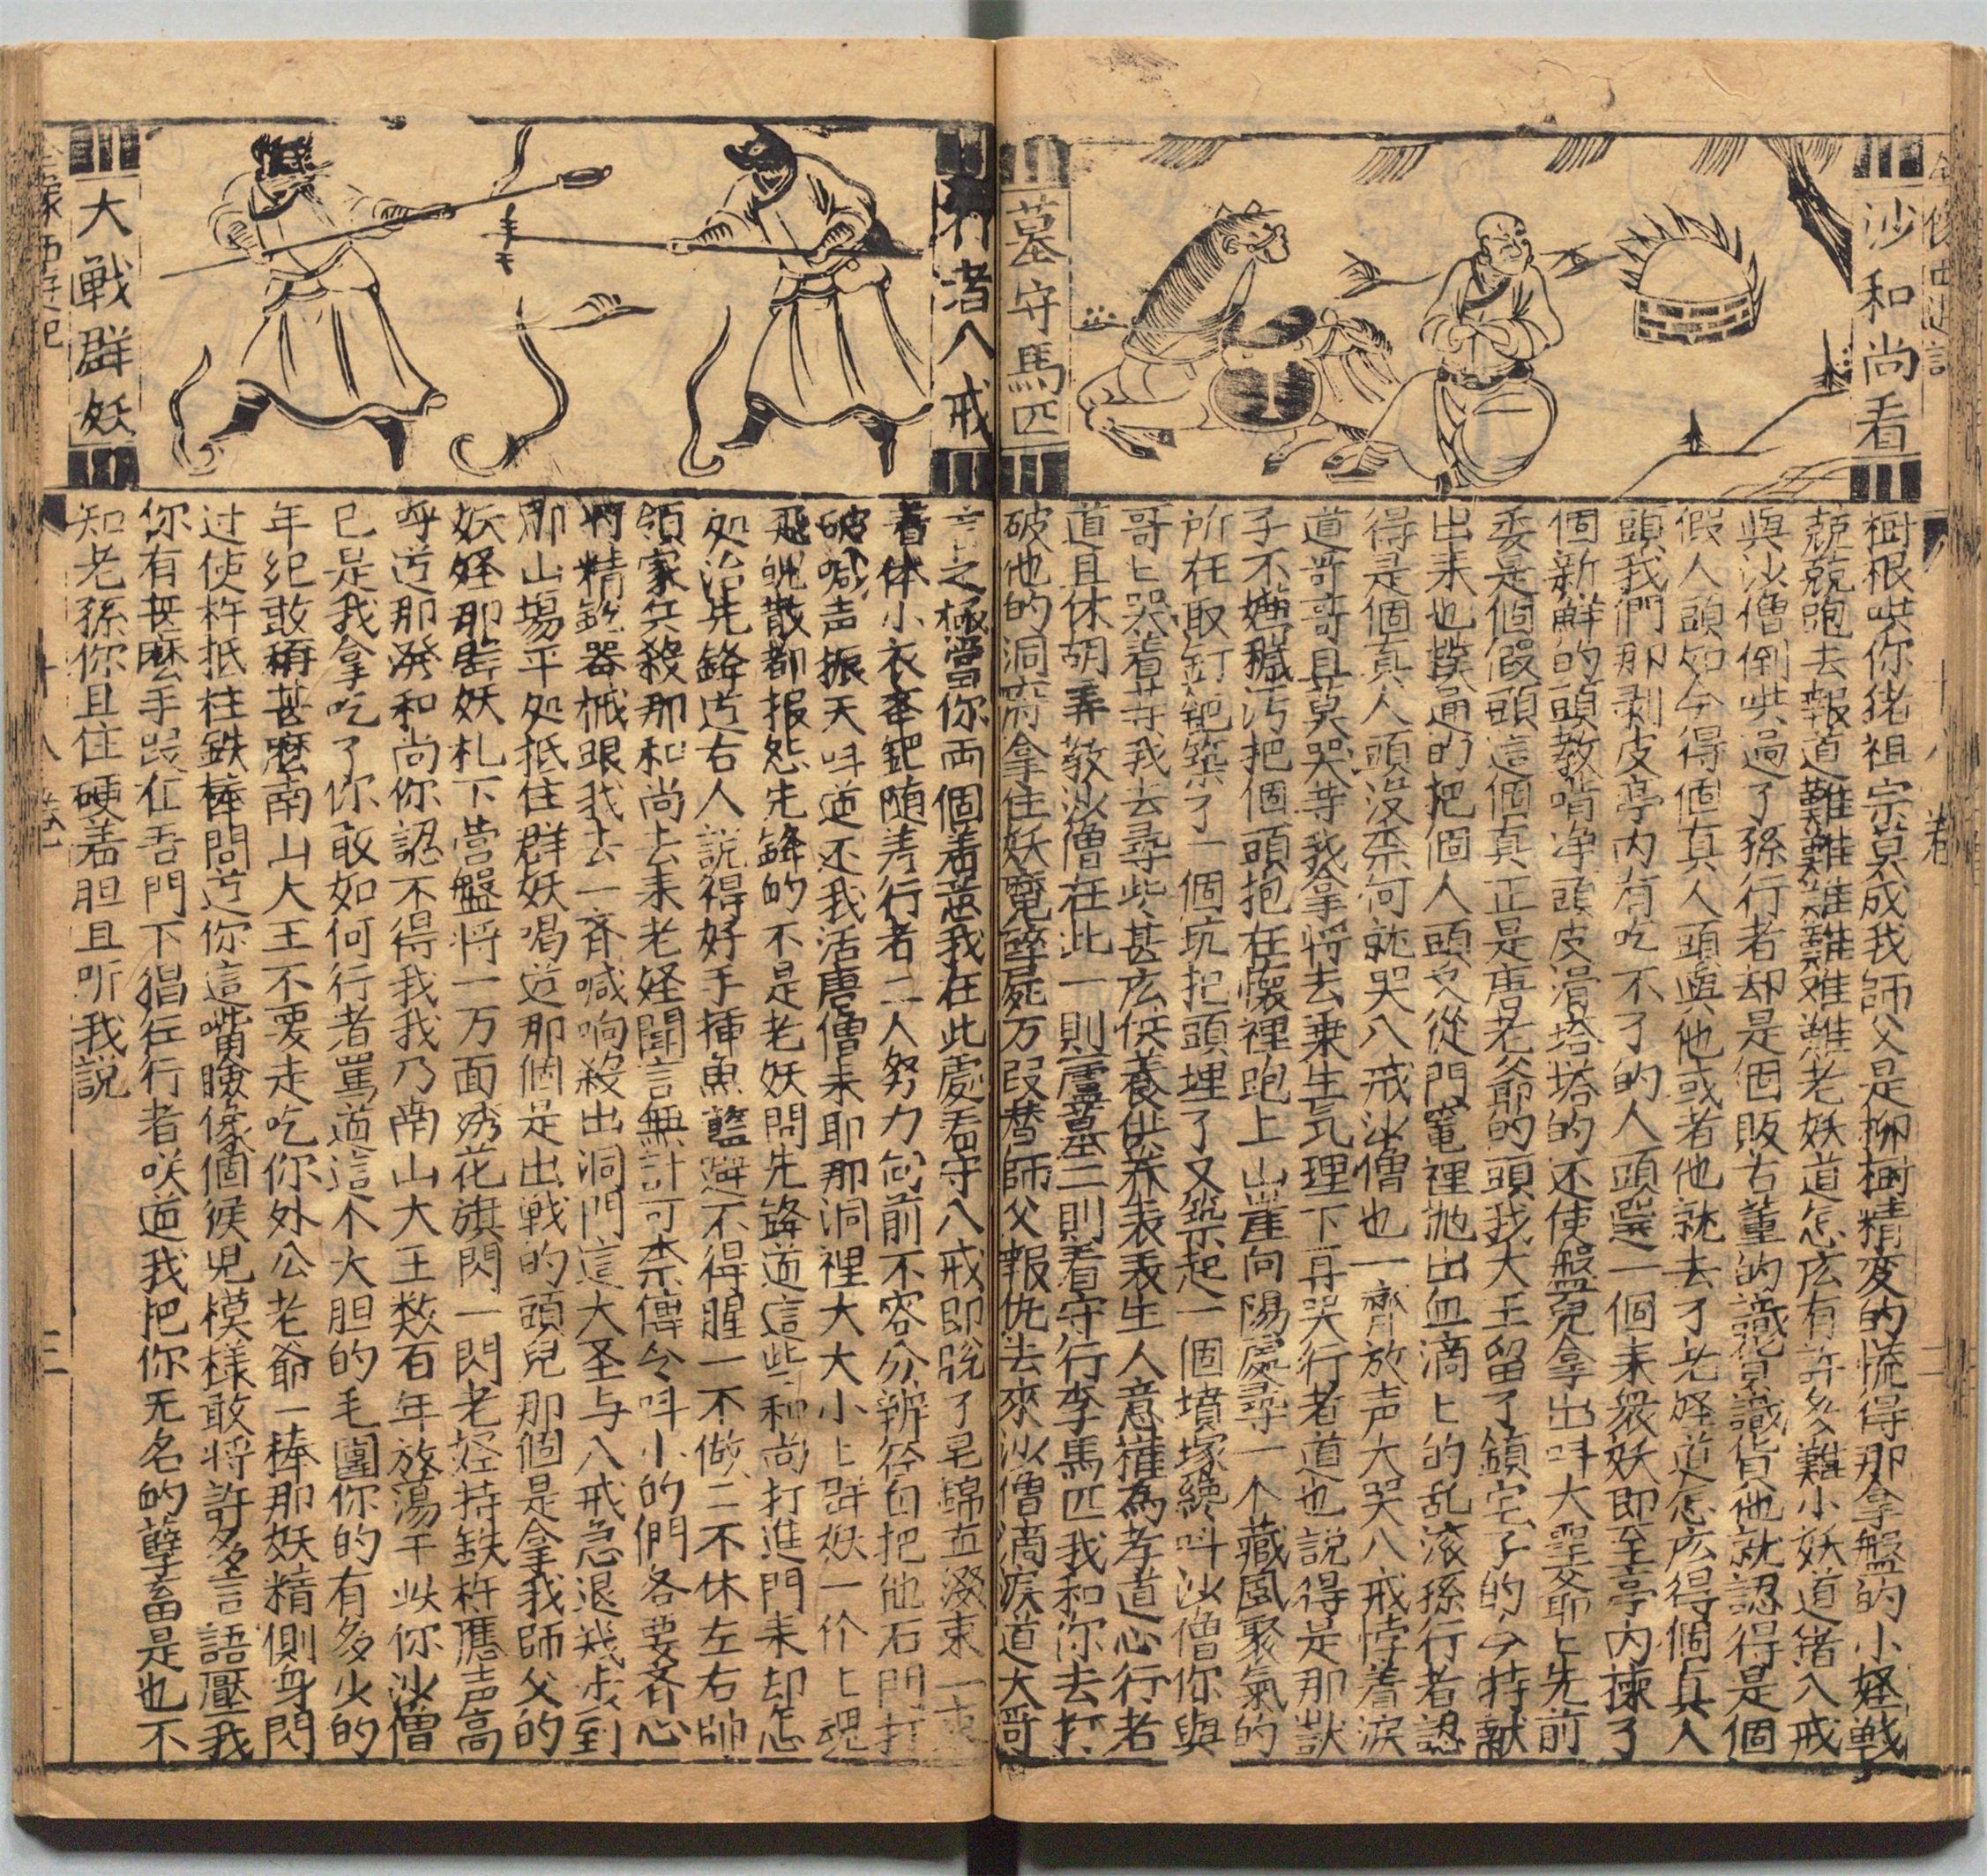 沙和尚看
墓守馬匹
樹根哄你猪祖宗莫成我師父是柳樹精变的慌得那拿盤的小妖戰
兢兢跑去報道難難難難難難老妖道怎庅有許多難小妖道猪八戒
與沙僧倒哄過了孫行者却是個販古董的識貨識貨他就認得是個
假人頭如今得個真人頭與他或者他就去了老妖道怎庅得個真人
頭我們那剥皮亭内有吃不了的人頭選一個來衆妖即至亭内揀了
個新鮮的頭教啃净頭皮滑塔塔的还使盤兒拿出呌大聖爺上先前
委是個假頭這個真正是唐老爺的頭我大王留了鎮宅子的今特献
出来也撲通的把個人頭又從門窰裡抛出血滴上的乱滚孫行者認
得是個真人頭没奈何就哭八戒沙僧也一齊放声大哭八戒悖着淚
道哥哥且莫哭等我拿將去乗生気埋下再哭行者道也説得是那獃
子不嫌穢污把個頭抱在懷裡跑上山崖向陽處尋一个藏風聚氣的
所在取釘鈀築了一個坑把頭埋了又築起一個墳塚纔呌沙僧你與
哥上哭着等我去尋些甚庅供養供养表表生人意權為孝道心行者
道且休胡弄教沙僧在此一則廬墓二則看守行李馬匹我和你去打
破他的洞府拿住妖魔碎屍万段替師父報仇去來沙僧滴淚道大哥
行者八戒
大戰群妖
言之極當你両個着意我在此處看守八戒即脱了皂錦直裰束一束
着体小衣牽鈀随着行者二人努力向前不容分辨径自把他石門打
破喊声振天呌道还我活唐僧来耶那洞裡大大小上群妖一个上魂
飛魄散都报怨先鋒的不是老妖問先鋒道這些和尚打進門来却怎
処治先鋒道右人說得好手揷魚籃避不得腥一不做二不休左右帥
領家兵殺那和尚去来老妖聞言無計可奈傳令呌小的們各要齐心
將精銳器械跟我去一齐喊响殺出洞門這大圣与八戒急退幾步到
那山場平処抵住群妖喝道那個是出戰的頭兒那個是拿我師父的
妖怪那些妖札下营盤将一万面绣花旗閃一閃老怪持鉄杵應声高
呼道那潑和尚你認不得我我乃南山大王数百年放蕩于此你沙僧
已是我拿吃了你敢如何行者罵道這个大胆的毛團你的有多少的
年纪敢稱甚麽南山大王不要走吃你外公老爺一棒那妖精側身閃
过使杵抵住鉄棒問道你這嘴臉像個猴兒模様敢将許多言語壓我
你有甚麽手段在吾門下猖狂行者咲道我把你无名的孽畜是也不
知老孫你且住硬着胆且听我説